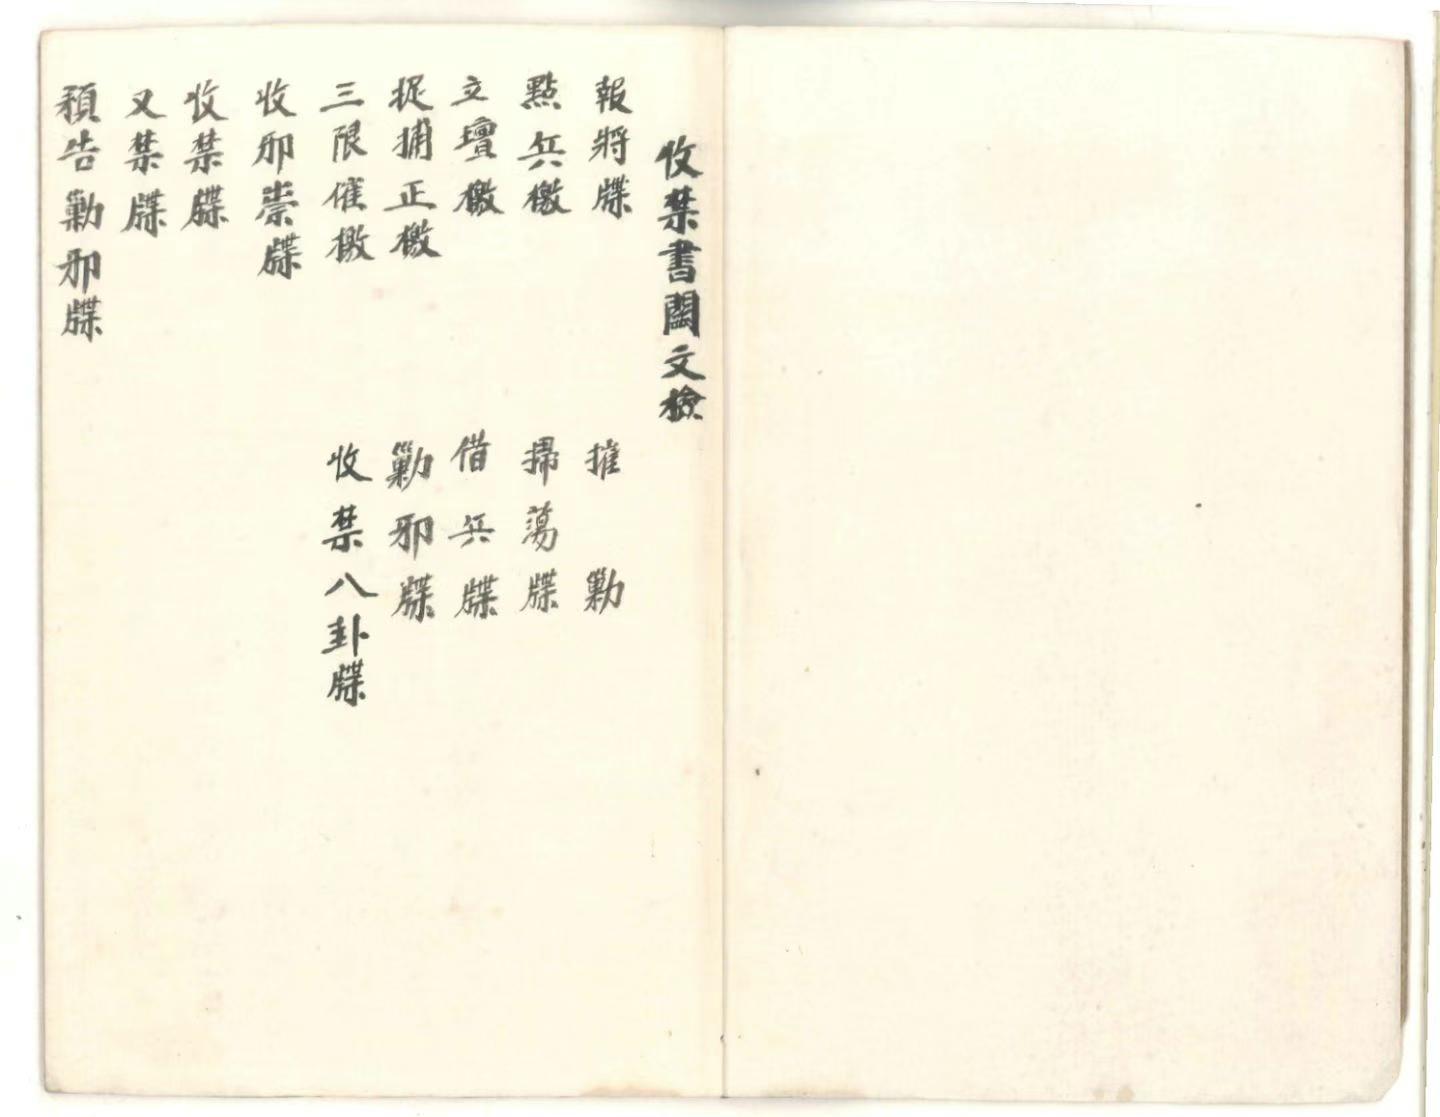 收禁書闗文檢
報將牒
點兵檄
立壇檄
捉捕正檄
三限催檄
收邪祟牒
收禁牒
又禁牒
預告勦邪牒
摧勦
掃蕩牒
借兵牒
勦邪牒
收禁八卦牒